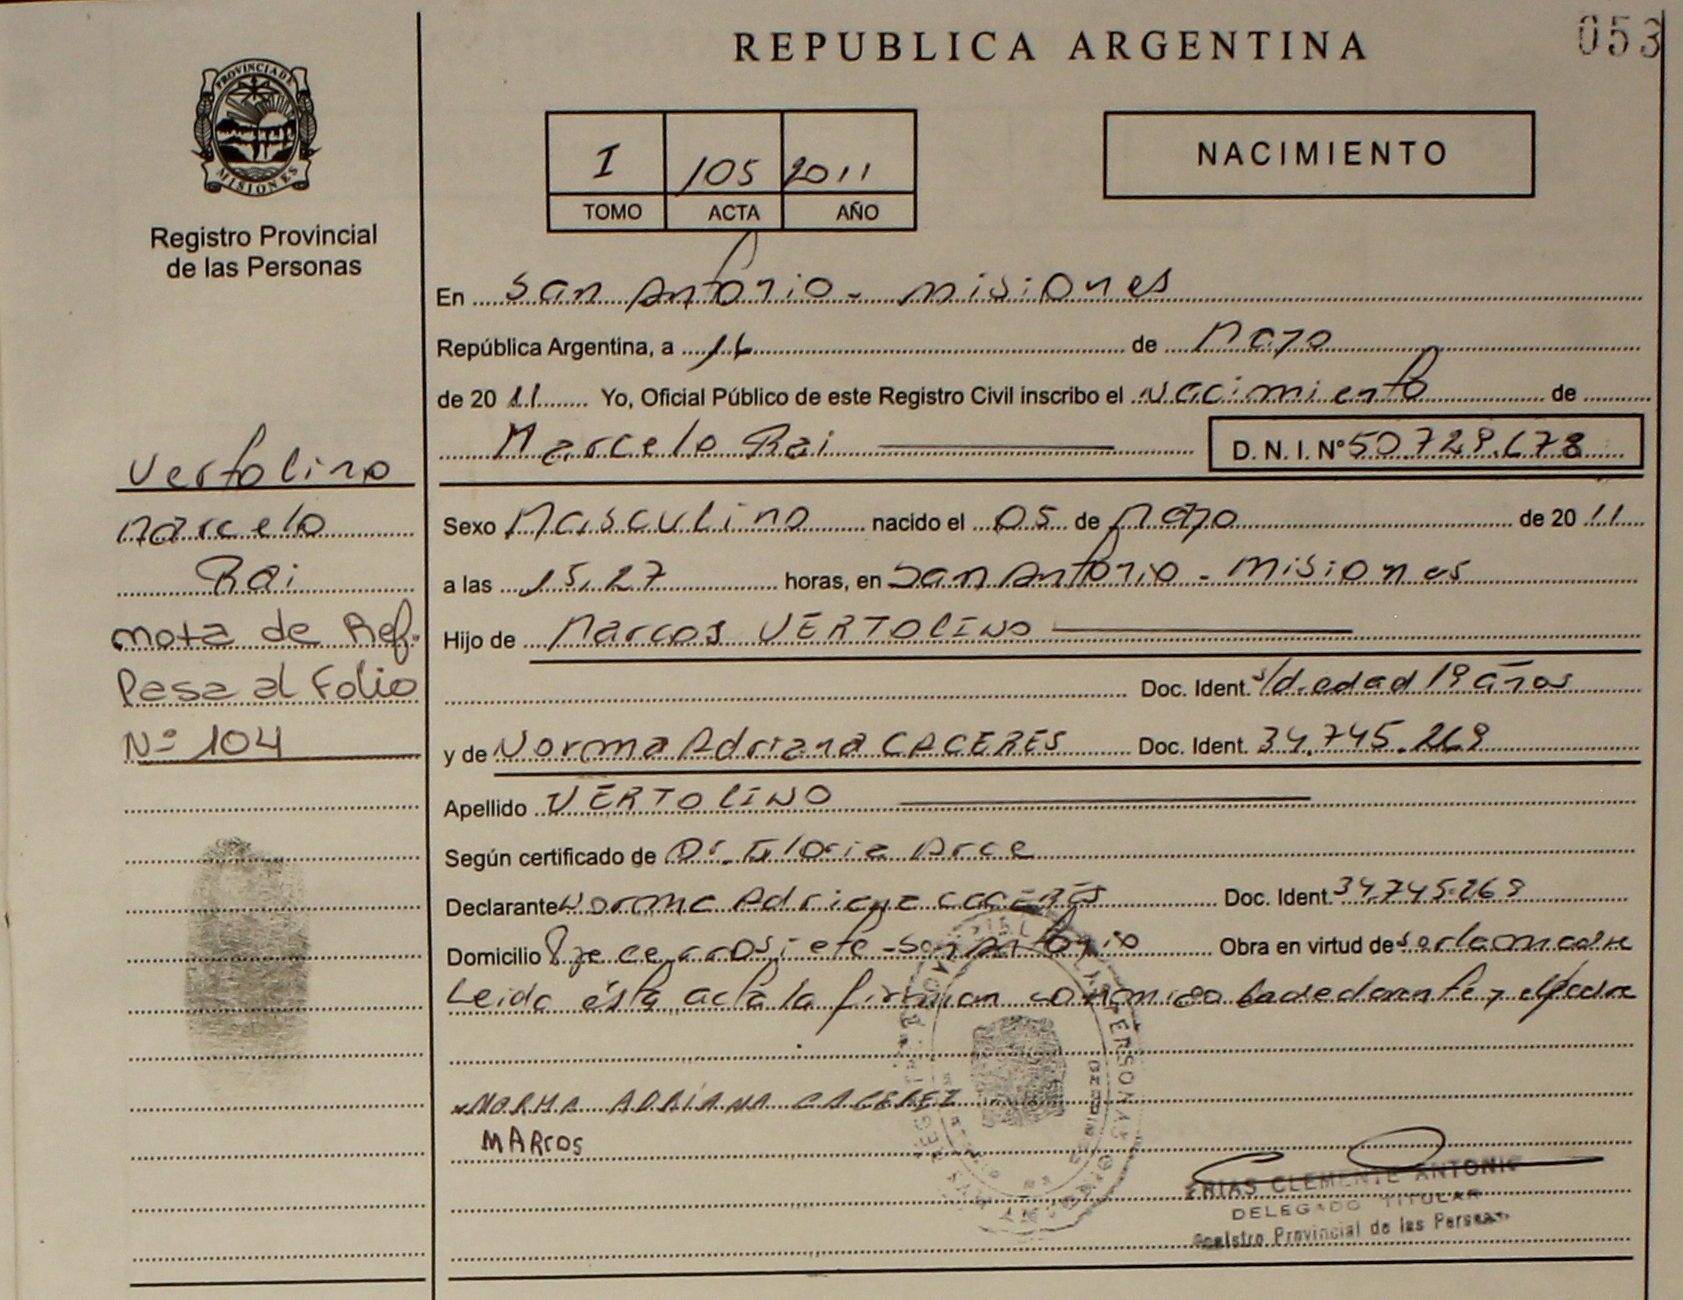 053
REPUBLICA ARGENTINA
PROVINCIA DE
MISIONES
Registro Provincial
de las Personas
I 105 2011
TOMO ACTA AÑO
NACIMIENTO
En San Antonio - Misiones
República Argentina, a 16 de Mayo
de 2011 Yo, Oficial Público de este Registro Civil inscribo el Nacimiento de
Marcelo Rai D. N. I. Nº 50.729.678
Vertolino
Marcelo
Rai
nota de Ref.
Pasa al Folio
Nº 104
Sexo Masculino nacido el 05 de Mayo de 2011
a las 15.27 horas, en San Antonio - Misiones
Hijo de Marcos VERTOLINO
Doc. Ident. s/d. edad 19 años
y de Norma Adriana CACERES Doc. Ident. 34.745.269
Apellido VERTOLINO
Según certificado de Dr. Gloria Arce
Declarante Norma Adriana CACERES Doc. Ident. 34.745.269
Domicilio cerro siete - San Antonio Obra en virtud de ser la madre
Leida ésta acta la firman conmigo la declarante y el padre
NORMA ADRIANA CACEREZ
MARCOS
FRIAS CLEMENTE ANTONIO
DELEGADO TITULAR
Registro Provincial de las Personas